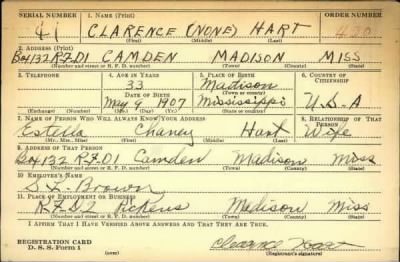 SERIAL NUMBER 1. NAME (Print) ORDER NUMBER
41 CLARENCE (NONE) HART 420
(First) (Middle) (Last)
2. ADDRESS (Print)
Box 132 R.F.D1 CAMDEN MADISON MISS
(Number and street or R. F. D. number) (Town) (County) (State)
3. TELEPHONE 4. AGE IN YEARS 5. PLACE OF BIRTH 6. COUNTRY OF CITIZENSHIP
33 Madison
DATE OF BIRTH (Town or county)
May 9 1907 Mississippi U.S.A
(Exchange) (Number) (Mo.) (Day) (Yr.) (State or country)
7. NAME OF PERSON WHO WILL ALWAYS KNOW YOUR ADDRESS 8. RELATIONSHIP OF THAT PERSON
Estella Chaney Hart Wife
(Mr., Mrs., Miss) (First) (Middle) (Last)
9. ADDRESS OF THAT PERSON
Box 132 R.F.D1 Camden Madison Miss
(Number and street or R. F. D. number) (Town) (County) (State)
10. EMPLOYER'S NAME
Brown
11. PLACE OF EMPLOYMENT OR BUSINESS
R.F.D2 Pickens Madison Miss
(Number and street or R. F. D. number) (Town) (County) (State)
I AFFIRM THAT I HAVE VERIFIED ABOVE ANSWERS AND THAT THEY ARE TRUE.
REGISTRATION CARD
D. S. S. Form 1 (over) Clearance Hart
(Registrant's signature)